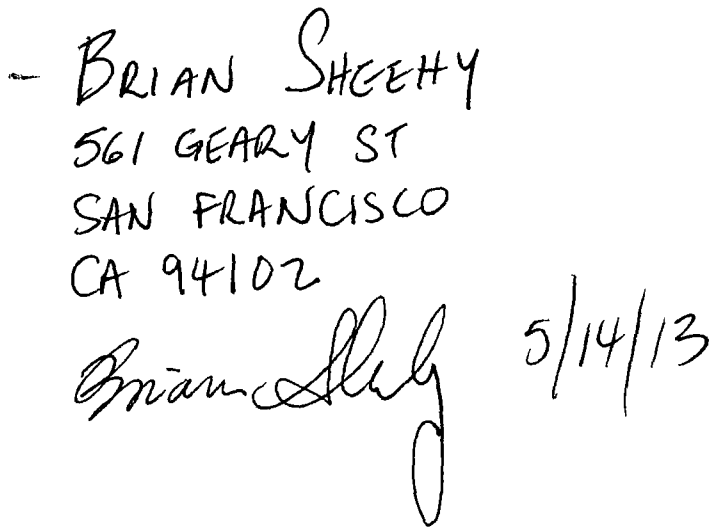 - BRIAN SHEEHY
561 GEARY ST
SAN FRANCISCO
CA 94102
Brian Sheehy 5/14/13